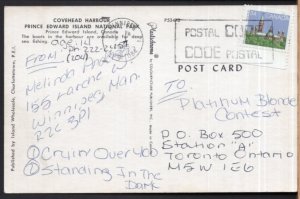 COVEHEAD HARBOUR
PRINCE EDWARD ISLAND NATIONAL PARK
Prince Edward Island, Canada
The boats in the harbour are available for deep
sea fishing.
P53492
POSTAL CODE
CODE POSTAL
POST CARD
Published by Island Wholesale, Charlottetown, P.E.I.
FROM:
Melinda
Winnipeg Man.
① Cryin' Over You
② Standing In The
Dark
TO
Platinum Blonde
Contest
P.O. Box 500
Station "A"
Toronto Ontario
M5W 1E6